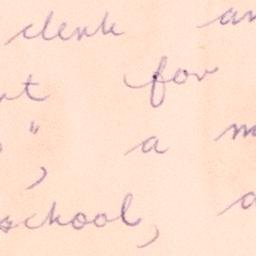 clerk an
t for
", a m
school, a